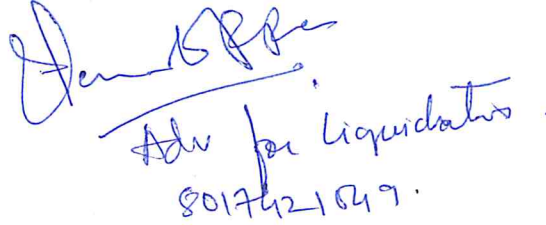 Adv for Liquidator
8017421549.